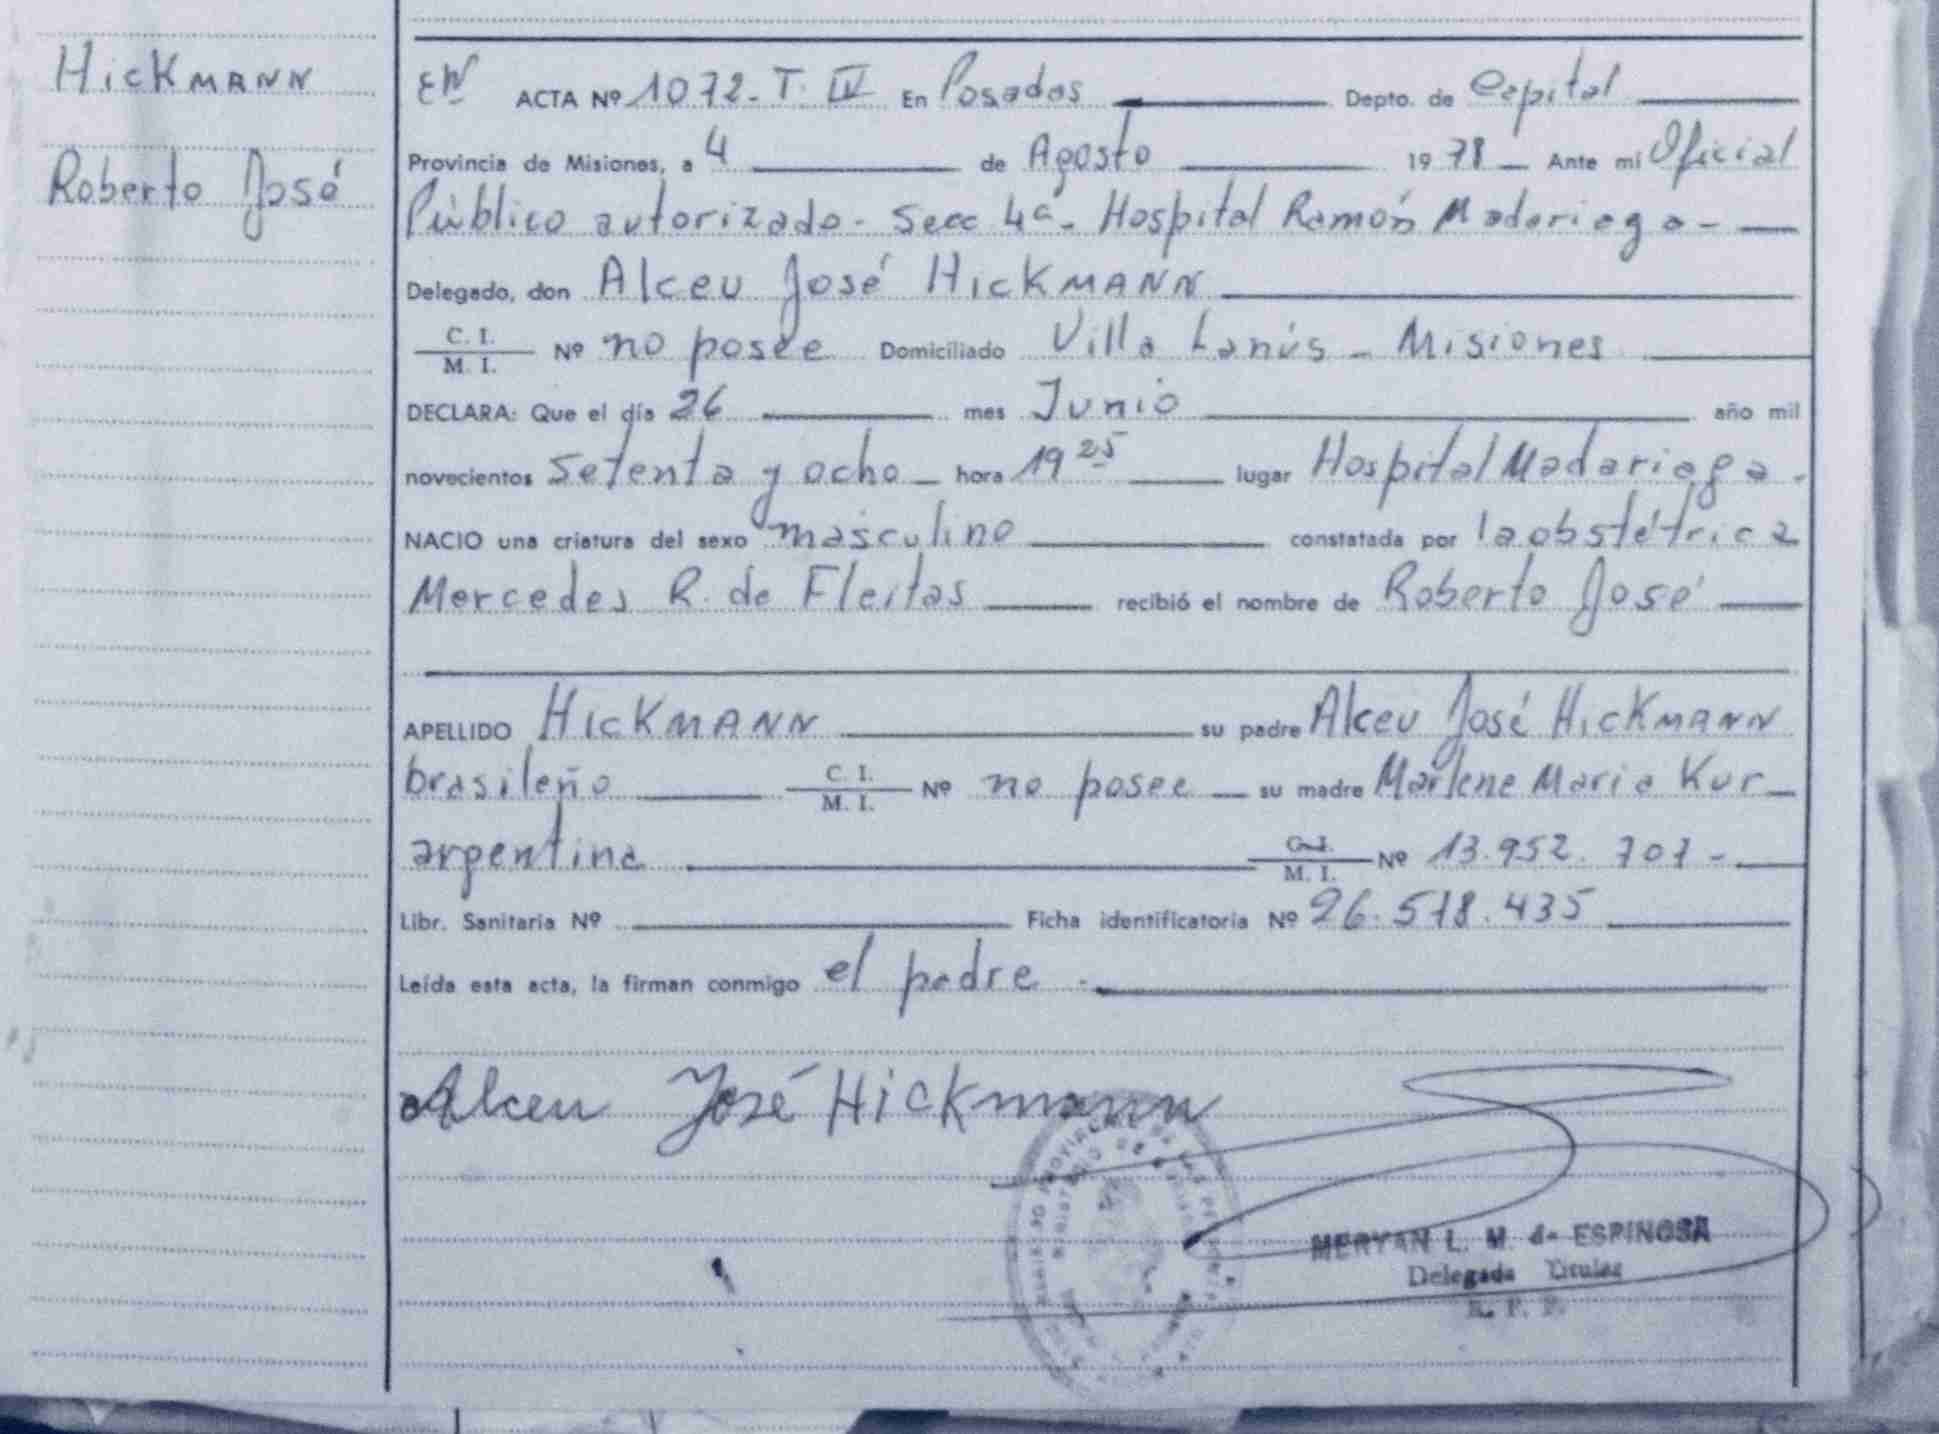 Hickmann
Roberto José
ACTA Nº 1072 - T. IV En Posadas Depto. de Capital
Provincia de Misiones, a 4 de Agosto 1978 Ante mí Oficial
Público autorizado - Secc 4ª - Hospital Ramón Madariaga -
Delegado, don Alceu José Hickmann
C. I. / M. I. Nº no posee Domiciliado Villa Lanús - Misiones
DECLARA: Que el día 26 mes Junio año mil
novecientos setenta y ocho hora 19 25 lugar Hospital Madariaga -
NACIO una criatura del sexo masculino constatada por la obstétrica
Mercedes R. de Fleitas recibió el nombre de Roberto José
APELLIDO Hickmann su padre Alceu José Hickmann
brasileño C. I. / M. I. Nº no posee su madre Marlene Maria Kur
argentina C. I. / M. I. Nº 13.952.707 -
Libr. Sanitaria Nº Ficha identificatoria Nº 26.578.435
Leída esta acta, la firman conmigo el padre -
Alceu José Hickmann
MERYAN L. M. de ESPINOSA
Delegada Titular